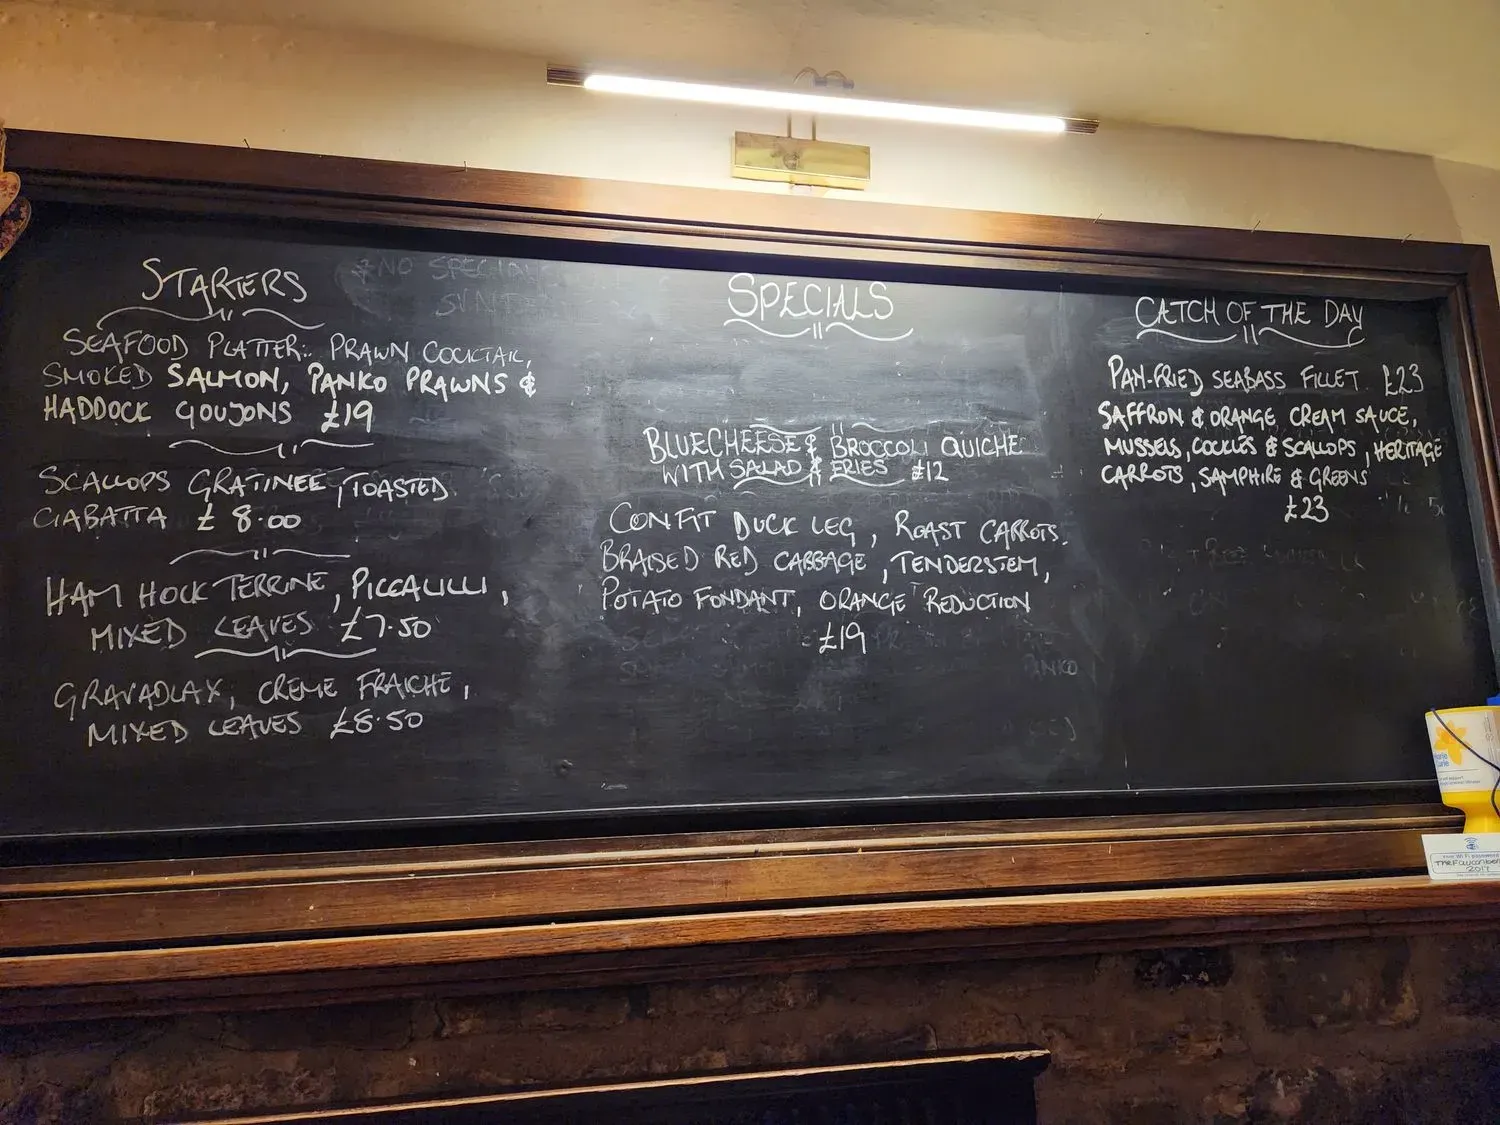 STARTERS
SEAFOOD PLATTER: PRAWN COCKTAIL,
SMOKED SALMON, PANKO PRAWNS &
HADDOCK GOUJONS £19
SCALLOPS GRATINEE, TOASTED
CIABATTA £8.00
HAM HOCK TERRINE, PICCALILLI,
MIXED LEAVES £7.50
GRAVADLAX, CREME FRAICHE,
MIXED LEAVES £8.50
NO
SPECIALS
BLUECHEESE & BROCCOLI QUICHE
WITH SALAD & FRIES £12
CONFIT DUCK LEG, ROAST CARROTS.
BRAISED RED CABBAGE, TENDERSTEM,
POTATO FONDANT, ORANGE REDUCTION
£19
PANKO
CATCH OF THE DAY
PAN-FRIED SEABASS FILLET £23
SAFFRON & ORANGE CREAM SAUCE,
MUSSELS, COCKLES & SCALLOPS, HERITAGE
CARROTS, SAMPHIRE & GREENS
£23
Your Wi Fi password
2017